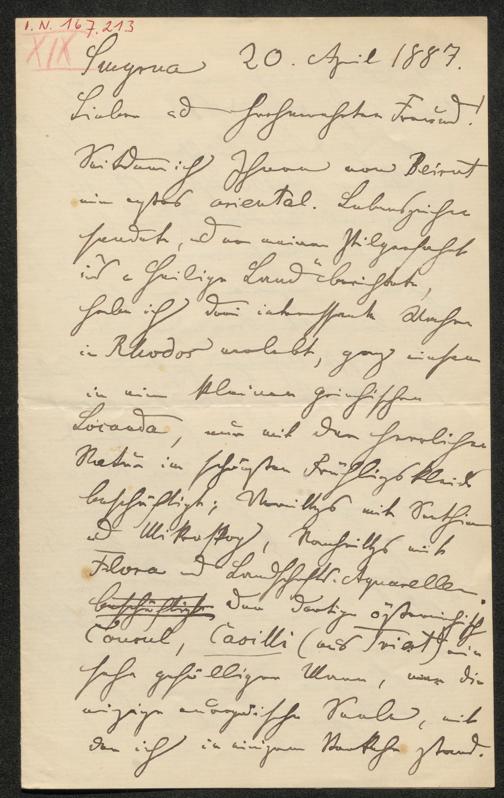 I. N. 167.213
XIX
Smyrna 20. April 1887.
Lieber und hochverehrter Freund!
Seitdem ich Ihnen von Beirut
ein erstes oriental. Lebenszeichen
sendete, und von meiner Pilgerfahrt
ins "heilige Land" berichtete,
habe ich drei interessante Wochen
in Rhodos verlebt, ganz einsam
in einer kleinen griechischen
Locanda, nur mit der herrlichen
Natur im schönsten Frühlingskleide
beschäftigt; Vormittags mit
und Mikroskop, Nachmittags mit
Flora und Landschafts-Aquarellen.
beschäftigt Der dortige österreichische
Consul, Cavilli (aus Triest) ein
sehr gefälliger Mann, war die
einzige europäische Seele, mit
der ich in einigem Verkehr stand.